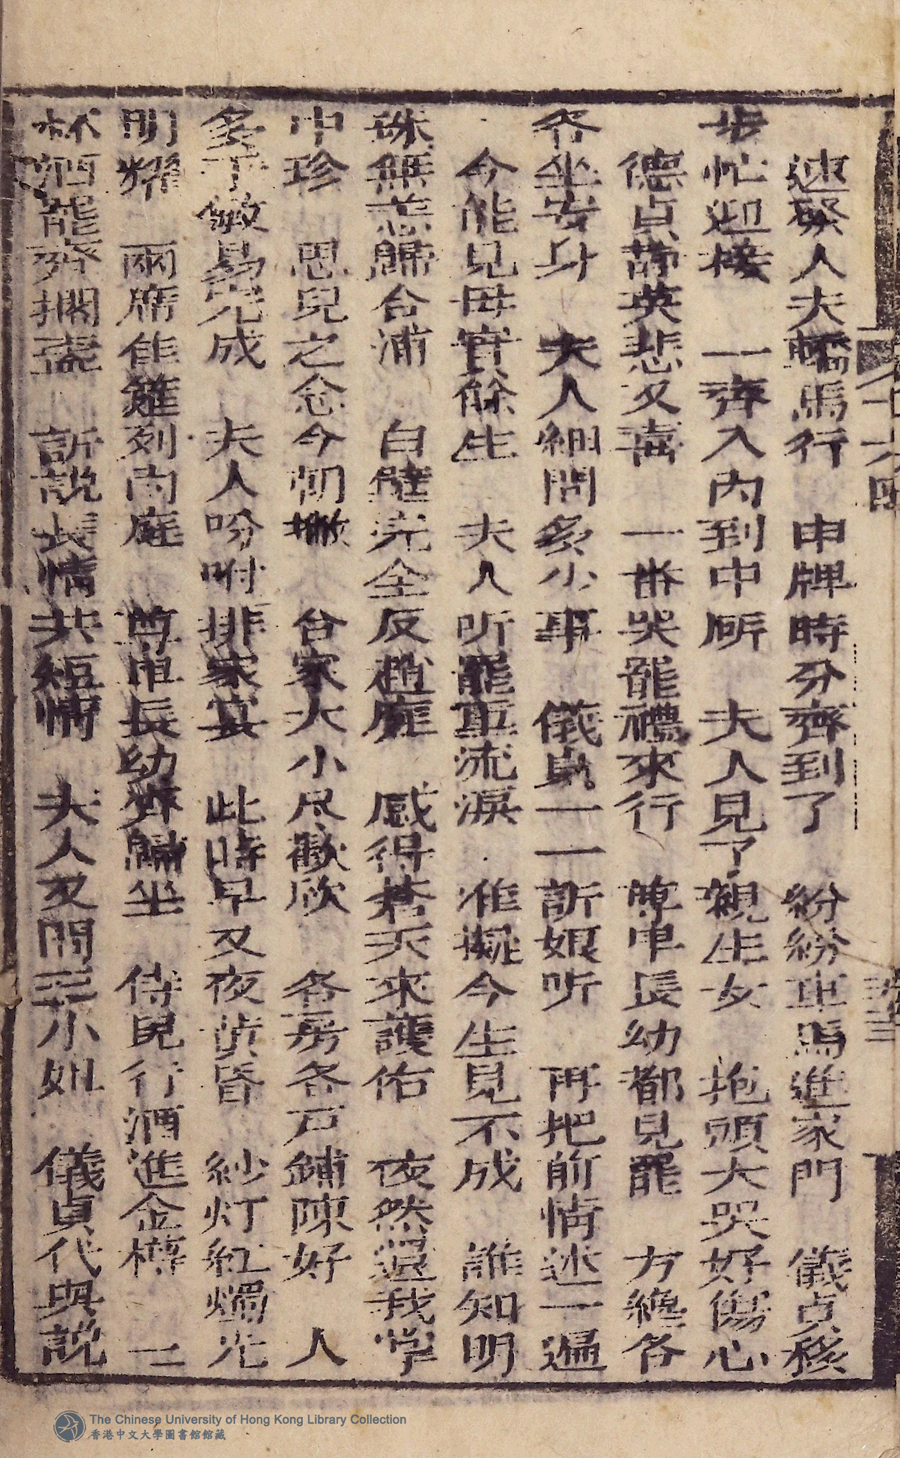 速發人夫轎馬行 申牌時分齊到了 紛紛車馬進家門 儀貞移
步忙迎接 一齊入內到中廳 夫人見了親生女 抱頭大哭好傷心
德貞 英悲又喜 一番哭罷禮來行 尊卑長幼都見罷 方纔各
各坐安身 夫人細問多少事 儀貞一一訴娘听 再把前情述一遍
今能見母實餘生 夫人听罷重流淚 准擬今生見不成 誰知明
珠無恙歸合浦 白璧完全反趙庭 感得蒼天來護佑 依然還我掌
中珍 思兒之念今朝撇 合家大小尽歡欣 各房各戶鋪陳好 人
多手敏易完成 夫人吩咐排家宴 此時早又夜黄昏 紗灯紅燭光
明耀 兩席佳筵列內庭 尊卑長幼齊歸坐 侍兒行酒進金樽 三
杯酒罷齊擱盞 訴說長情共短情 夫人又問三小姐 儀貞代與說
The Chinese University of Hong Kong Library Collection
香港中文大學圖書館館藏